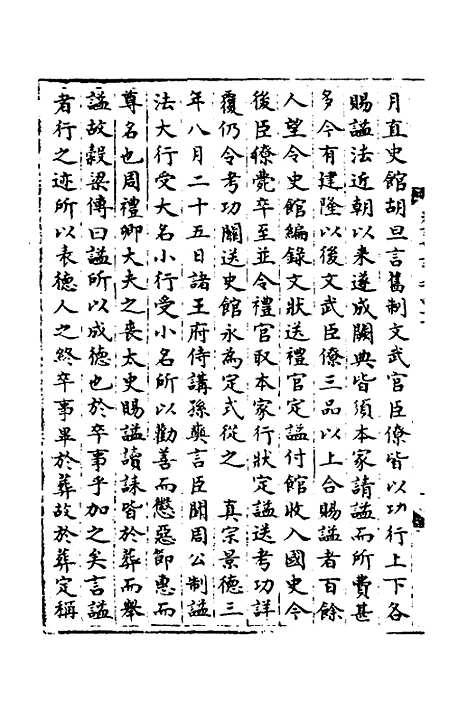 月直史館胡旦言舊制文武官臣僚皆以功行上下各
賜謚法近朝以来遂成闕典皆須本家請謚而所費甚
多今有建隆以後文武臣僚三品以上合賜謚者百餘
人望令史館編錄文狀送禮官定謚付館收入國史今
後臣僚薨卒至並令禮官取本家行狀定謚送考功詳
覆仍令考功關送史館永為定式從之　真宗景德三
年八月二十五日諸王府侍講孫奭言臣聞周公制謚
法大行受大名小行受小名所以勸善而懲惡節惠而
尊名也周禮卿大夫之喪太史賜謚讀誄皆於葬而舉
謚故榖梁傳曰謚所以成德也於卒事乎加之矣言謚
者行之迹所以表德人之終卒事畢於葬故於葬定稱